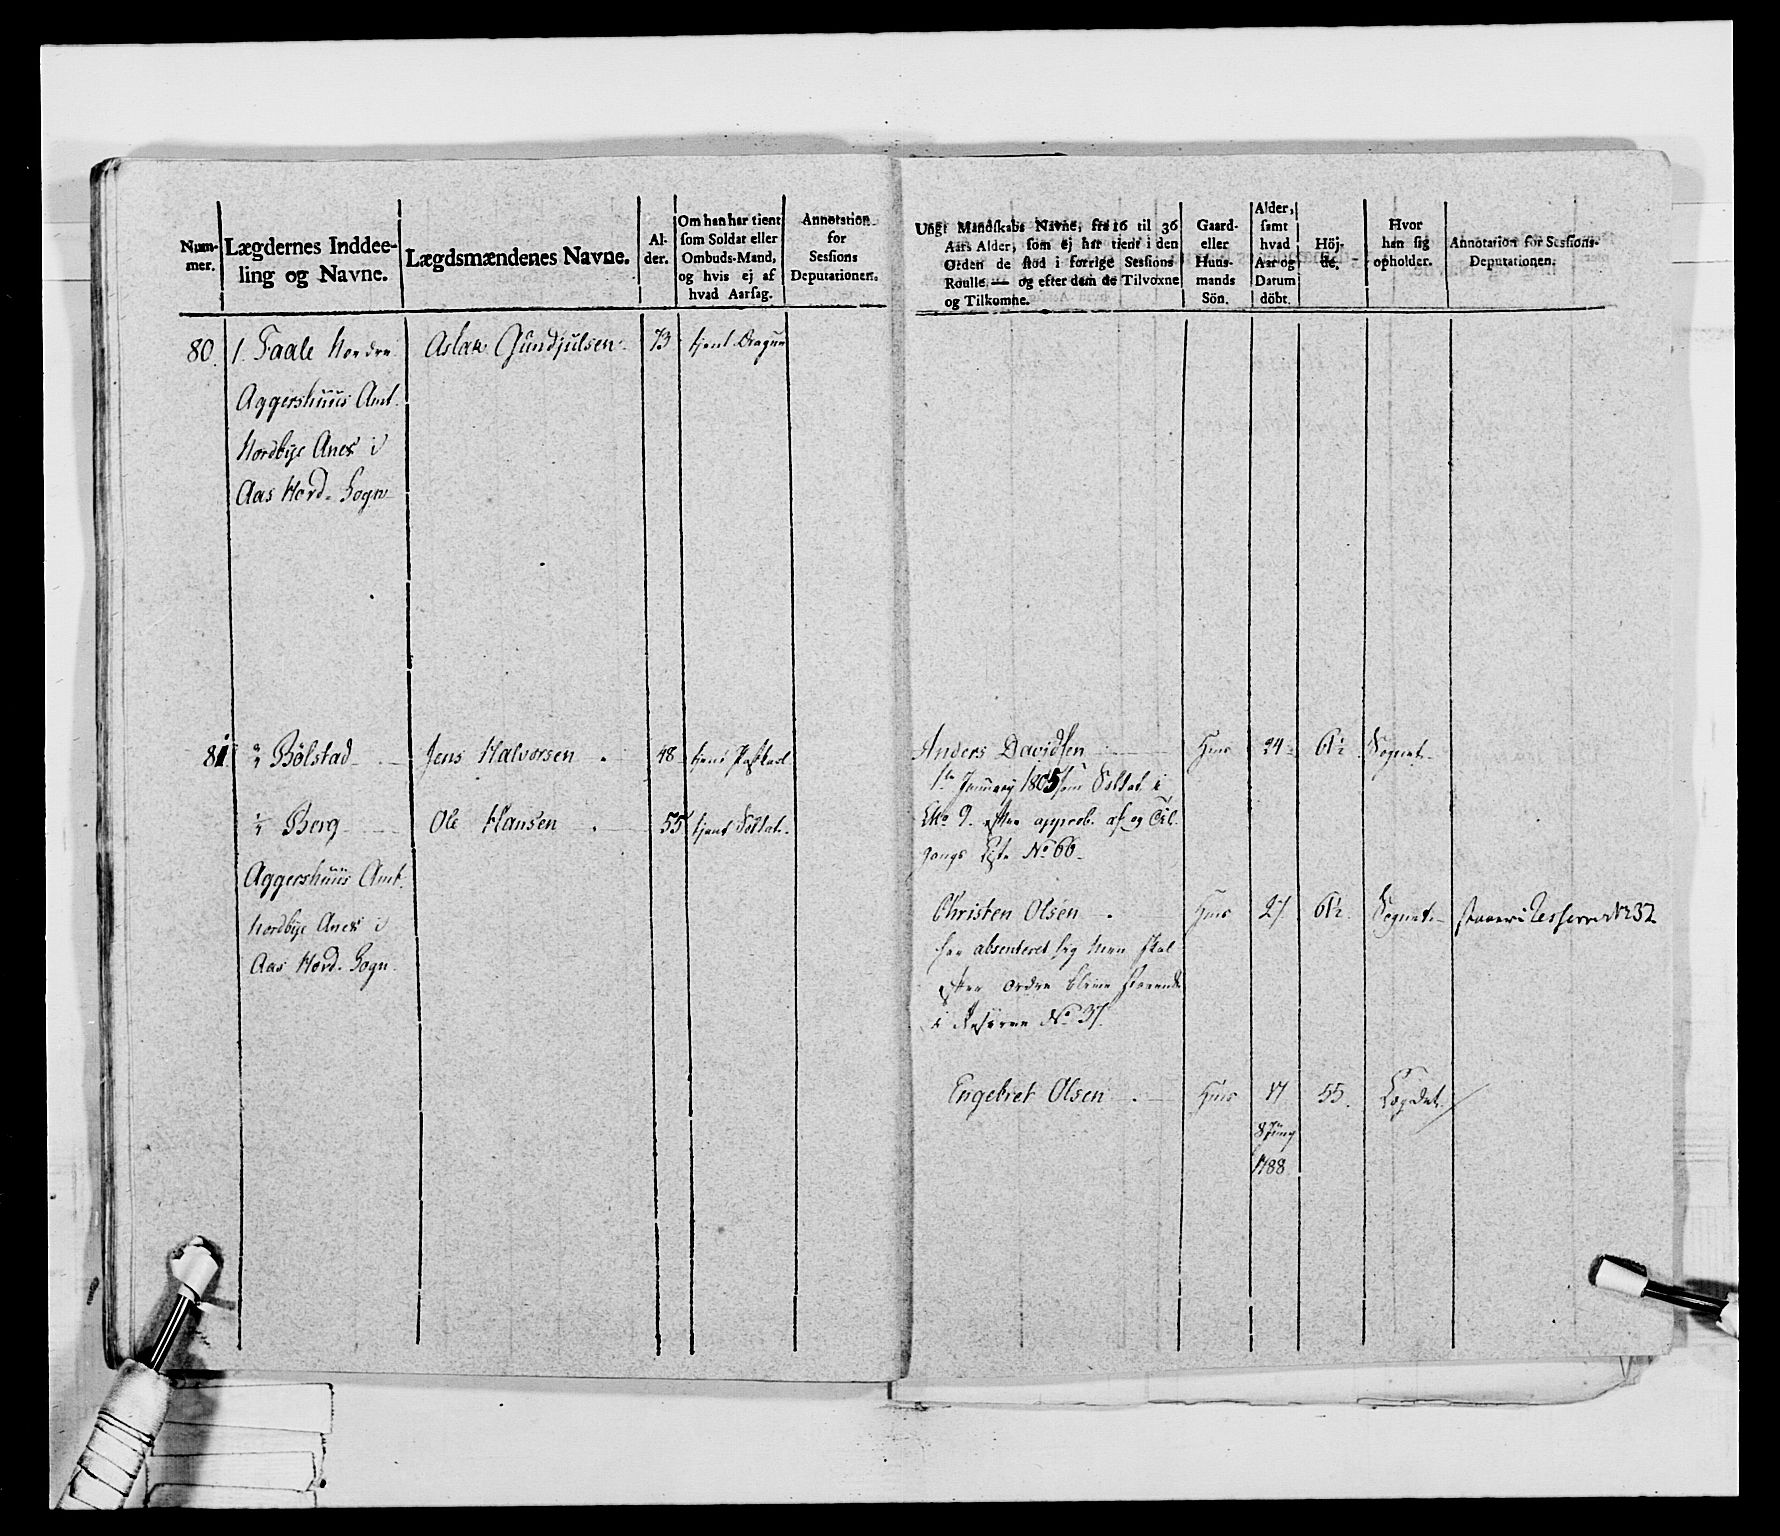 Num-
mer.
Lægdernes Inddee-
ling og Navne.
Lægdsmændenes Navne.
Al-
der.
Om han har tient
som Soldat eller
Ombuds-Mand,
og hvis ej af
hvad Aarsag.
Annotation
for
Sessions
Deputationen.
Ungt Mandskabs Navne, fra 16 til 36
Aars Alder, som ej har tient i den
Orden de stod i forrige Sessions
Roulle — og efter dem de Tilvoxne
og Tilkomne.
Gaard-
eller
Huus-
mands
Sön.
Alder,
samt
hvad
Aar og
Datum
döbt.
Höj-
de.
Hvor
han sig
opholder.
Annotation for Sessions-
Deputationen.
80. 1. Faale Nordre Aslak Gundjulsen 73 tjent Dragun
Aggershuus Amt.
Nordbye Anex i
Aas Hovd. Sogn
81 ½ Bölstad Jens Halvorsen 48 tjent
½ Berg Ole Hansen 55 tjent Soldat.
Aggershuus Amt.
Nordbye Anex i
Aas Hovd. Sogn.
Anders Davidsen Huus 24 61½ Sognet.
1te January 1805 som Soldat i
No 9. efter approb. af og Til
gangs Liste No 66.
Christen Olsen Huus 27 61½ Sognet
har absenteret sig men skal
efter Ordre blive staaende
i Reserven No 37.
Engebret Olsen Huus 17 55. Lægdet.
8 Juny
1788